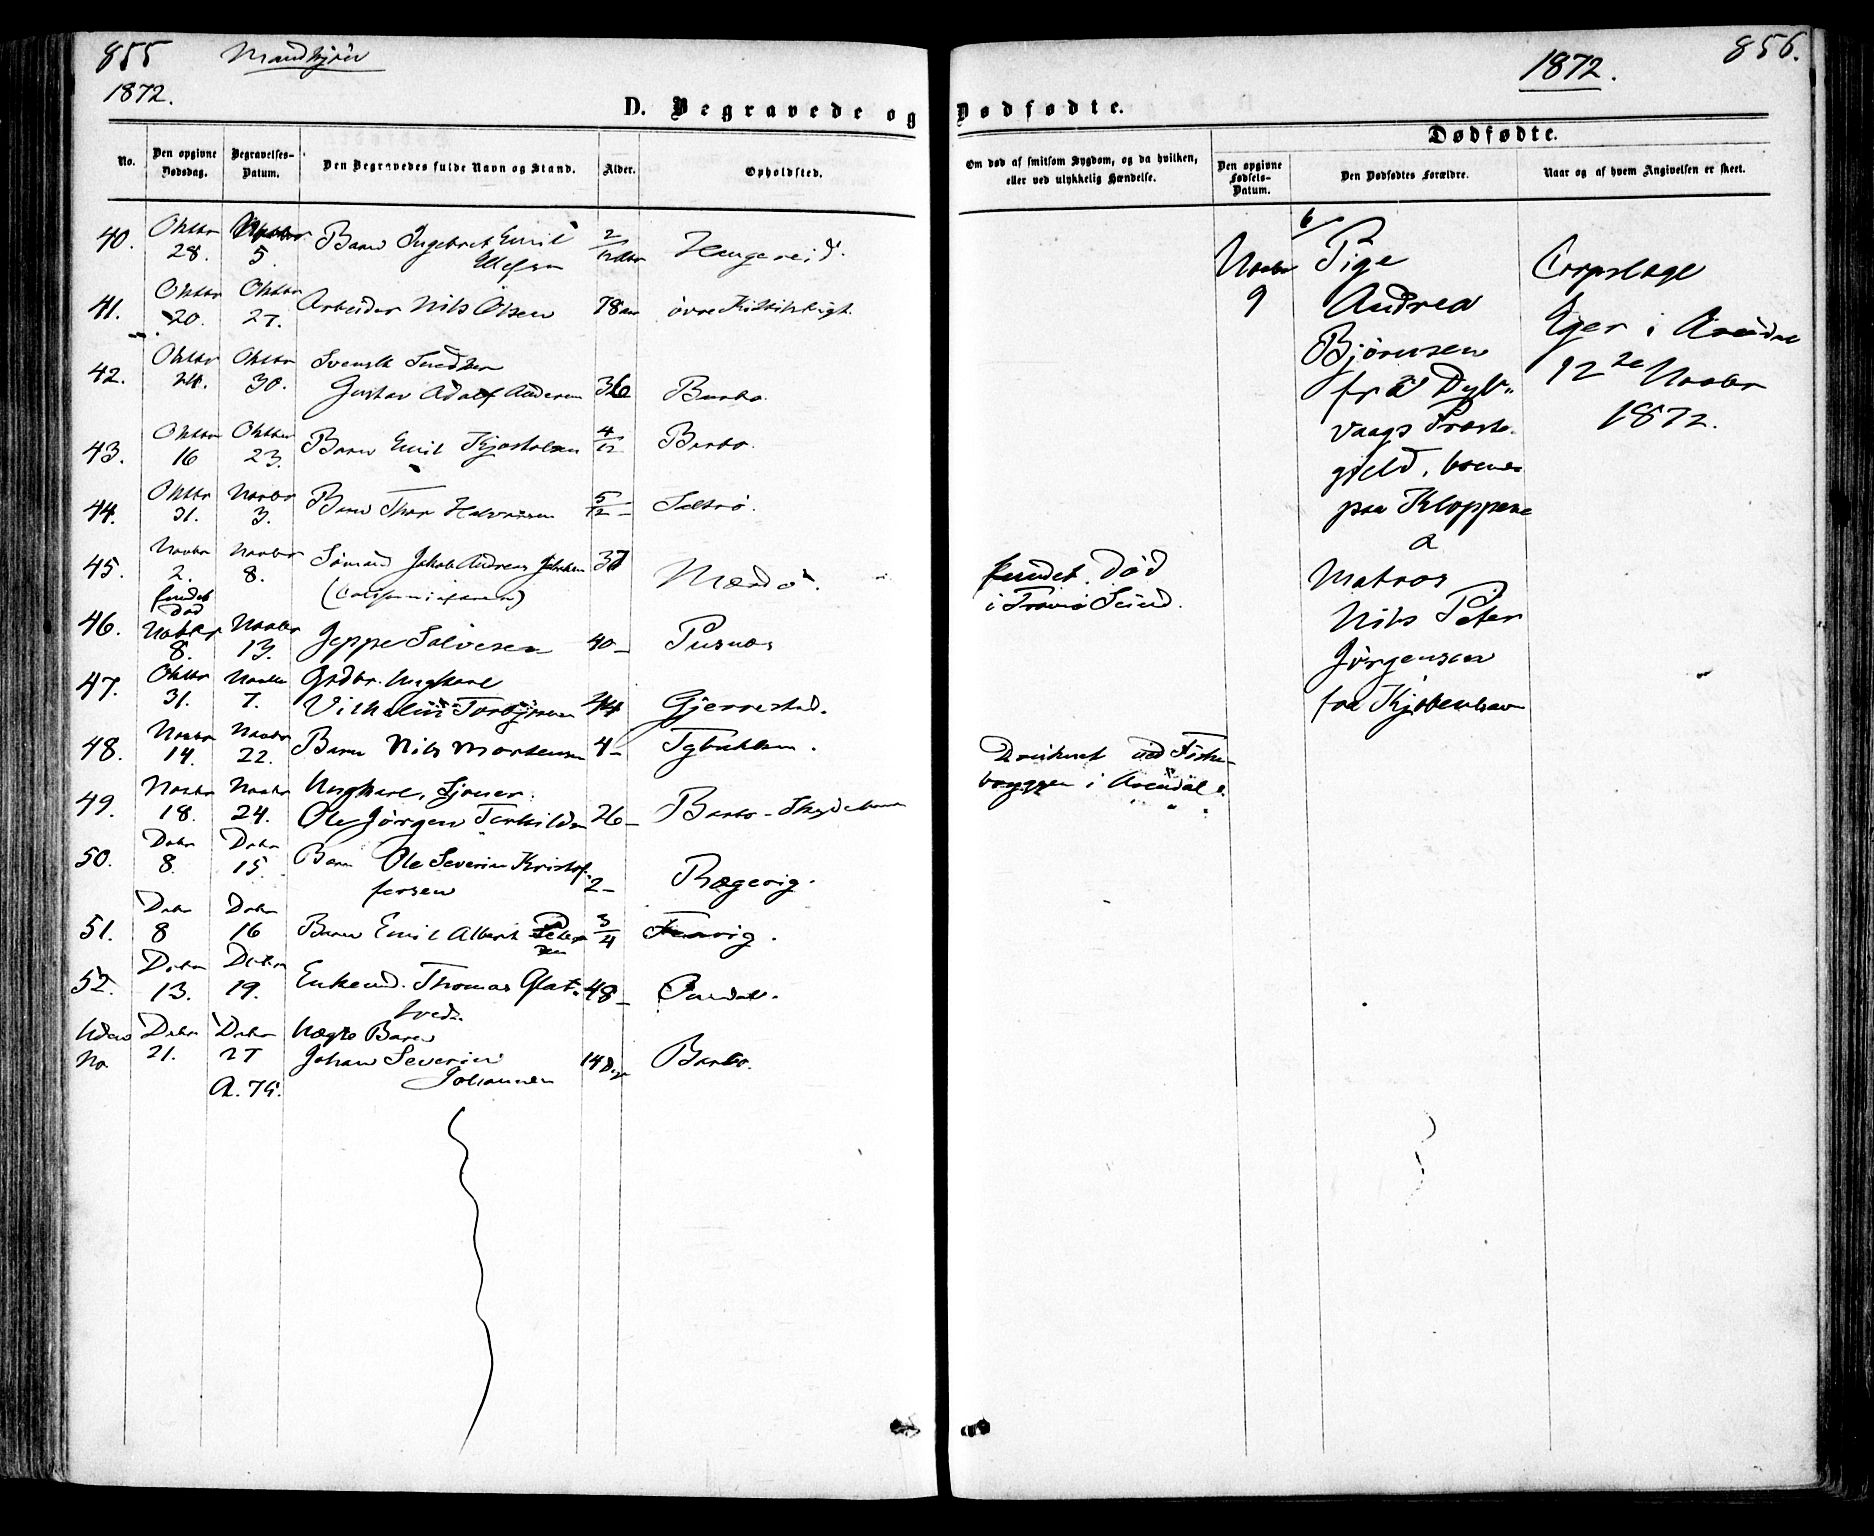 855
Mandkjøn
1872.
D. Begravede og
No.
Den opgivne Dødsdag.
Begravelses-Datum.
Den Begravedes fulde Navn og Stand.
Alder.
Opholdsted.
40. Oktbr 28. Novbr 5. Barn Ingebret Emil
Ellefsen 2/12 Haugereid.
41. Oktbr 20. Oktbr 27. Arbeider Nils Olsen 78 aar øvre
42. Oktbr 24. Oktbr 30. Svensk
Gustav Adolf Andersen 36 Barbo.
43. Oktbr 16 Oktbr 23. Barn Emil 4/12 Barbo.
44. Oktbr 31. Novbr 3. Barn Thor Halvorsen 5/12 – Saltrø.
45. Novbr 2. Novbr 8. Sømand Jakob Andreas Jakobsen 37
Mærdø.
46. fundet død Novbr 8. Novbr 13. Jeppe Salvesen 40 – Pusnæs
47. Oktbr 31. Novbr 7. Grdbr. Ungkarl
Vilhelm Torbjørnsen 44 Gjerrestad.
48. Novbr 14. Novbr 22. Barn Nils Mortensen 4 – Tybakken.
49. Novbr 18. Novbr 24. Ungkarl,
Ole Jørgen Terkildsen 26 – Barbo –
50. Debr 8. Debr 15. Barn Ole Severin Kristof-
fersen 2 – Rægevig.
51. Debr 8 Debr 16 Barn Emil Albert Peter
sen 3/4
52. Debr 13. Debr 19. Enkemd. Thomas Glat-
tved. 48 –
Uden No Debr 21. Debr 27 Uægte Barn
Johan Severin 14 Barbo.
A. 79. Johannesen
1872.
856.
Dødfødte.
Dødfødte.
Om død af smitsom Sygdom, og da hvilken,
eller ved ulykkelig Hændelse.
Den opgivne Fødsels-Datum.
Den Dødfødtes Forældre.
Naar og af hvem Angivelsen er skeet.
fundet død
i Tromø Sund.
Druknet ved Fiske-
bryggen i Arendal.
Novbr
9
b/
Pige
Andrea
Bjørnsen
fra Dyb-
vaags Præste-
gjeld, boende
paa Kloppene
a
Matros
Nils Peter
Jørgensen
fra Kjøbenhavn
Corpslæge
Eger i Arendal
12te Novbr
1872.